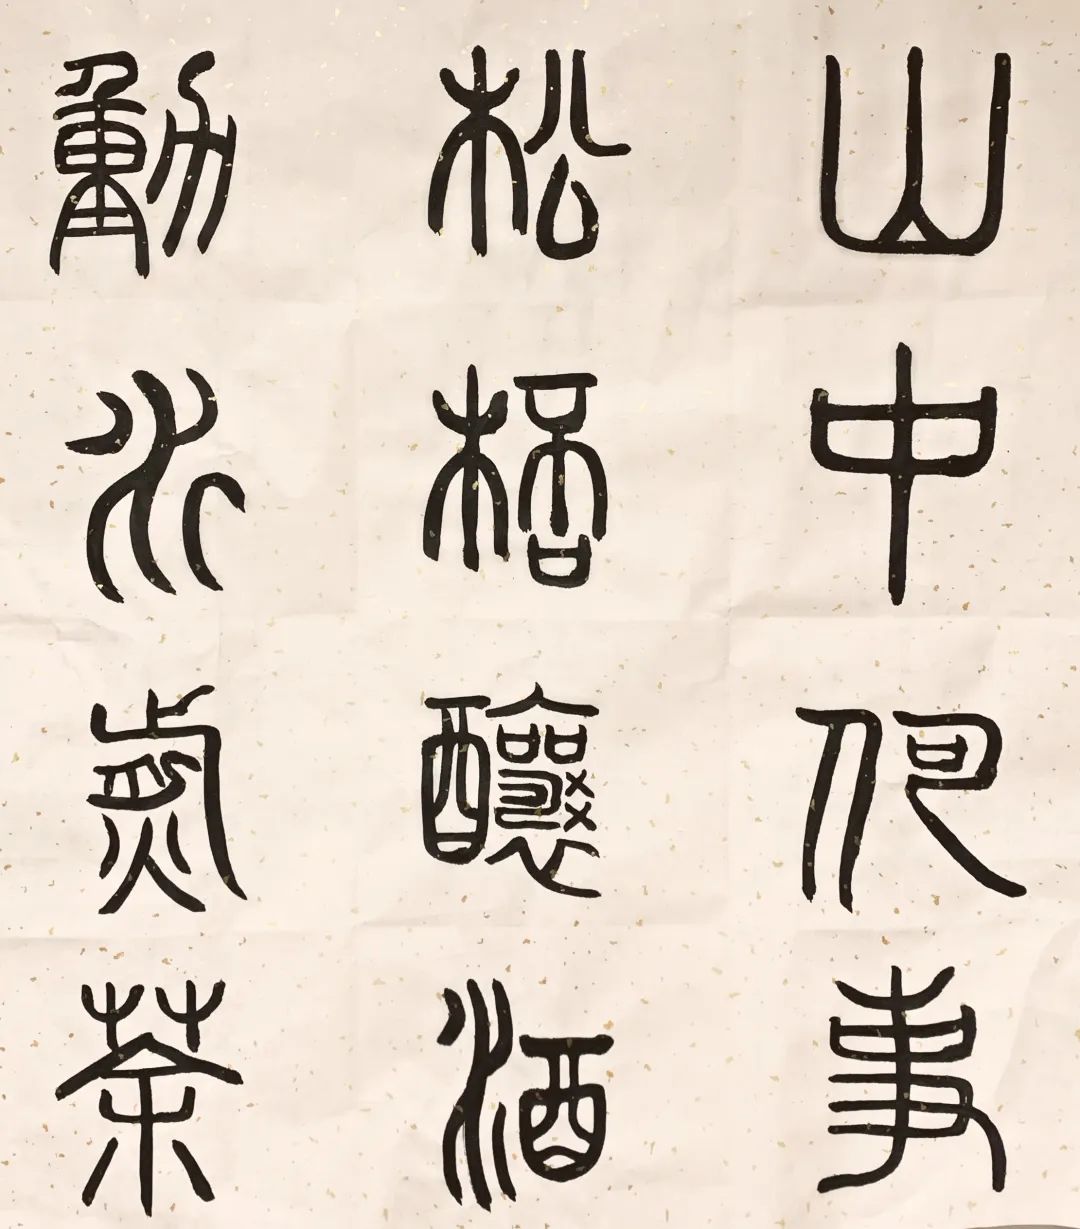 山中何事
松桮釀酒
動水煎茶